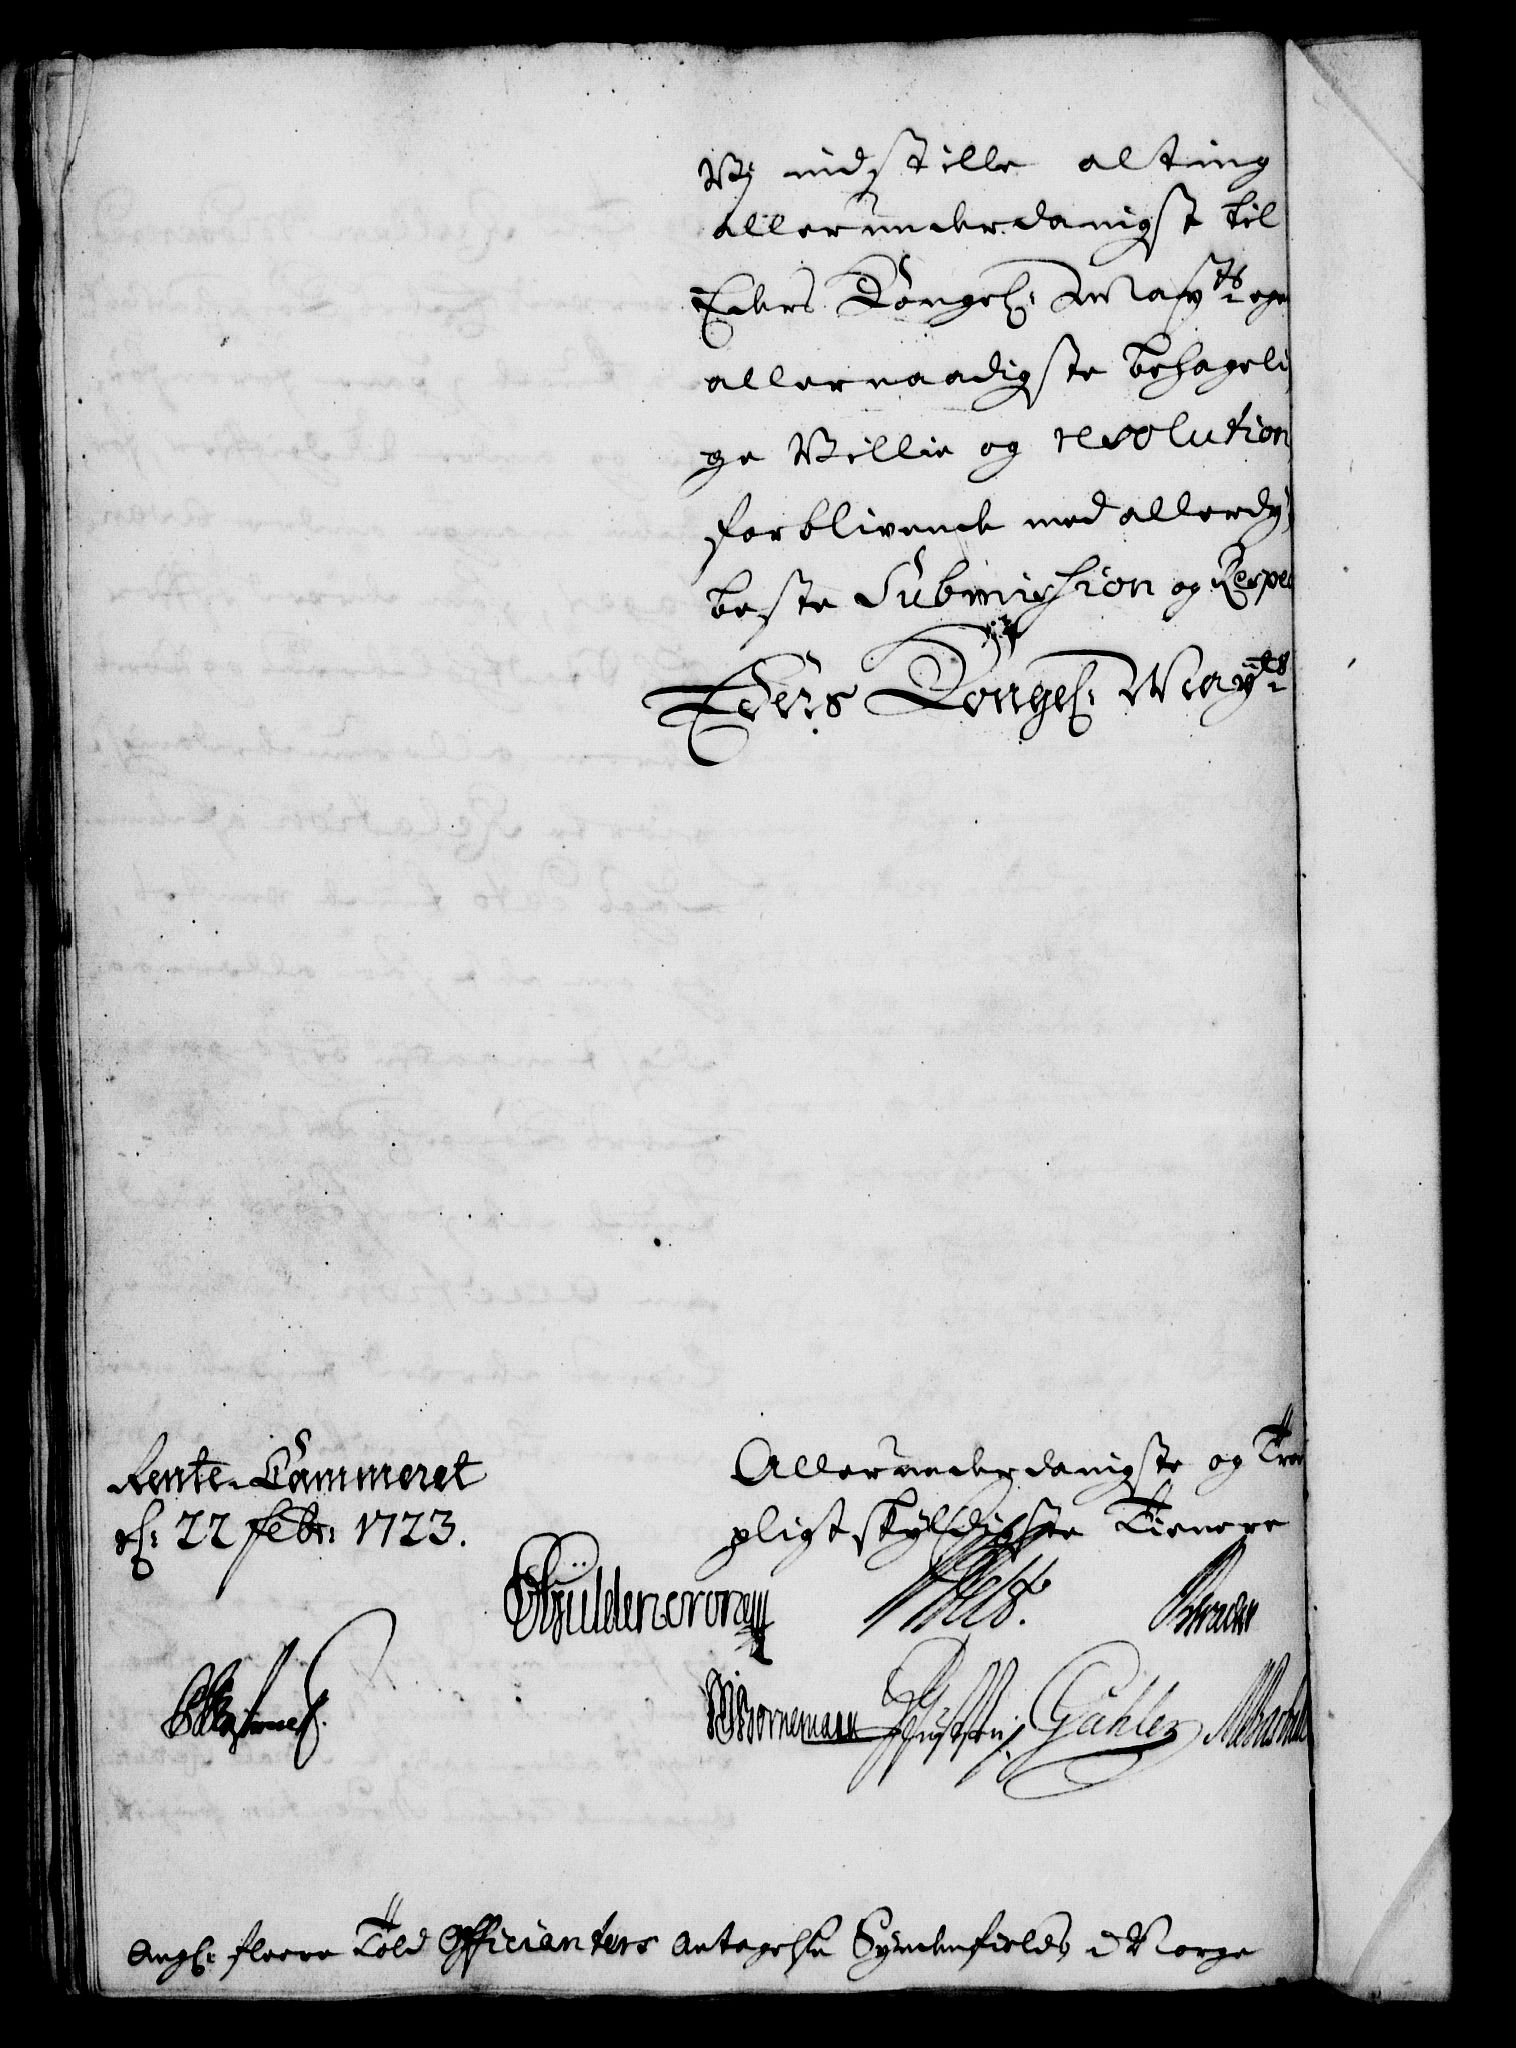 Vj indstille alting
allerunderdanigst til
Eders Kongel: May:ts ege
allernaadigste behageli
ge Villie og resolution
forblivende med allerdy
beste Submission og Respe
Eders Kongel: May:ts
Rente-Cammeret
d: 22 febr: 1723.
Allerunderdanigste og Troe
pligtskyldigste Tienere
Güldencrone
Bornemann
Gähler
Ang: fleere Told Officianters antagelse Syndenfields i Norge